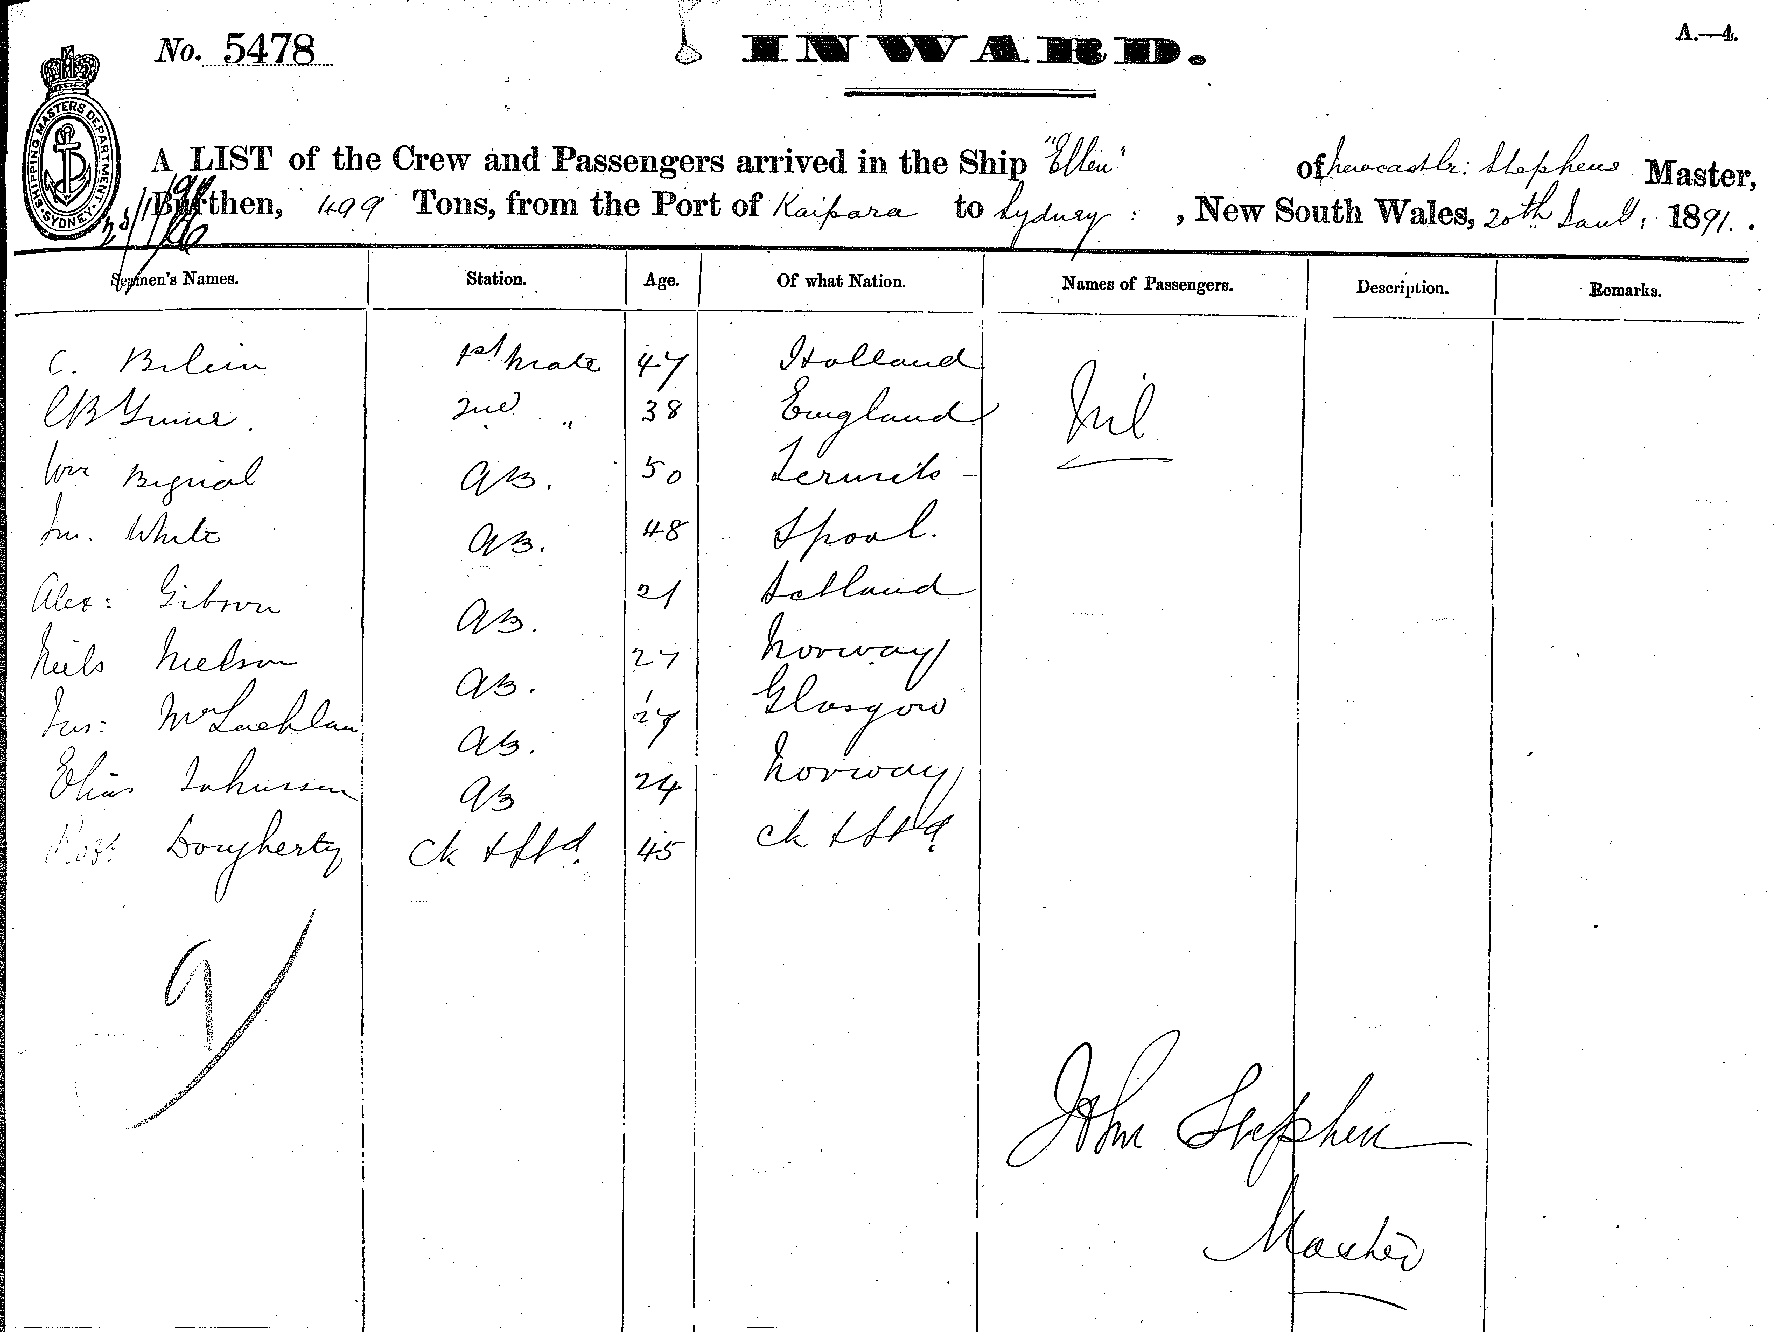 No. 5478
INWARD.
A.—4.
SHIPPING MASTERS DEPARTMENT SYDNEY
A LIST of the Crew and Passengers arrived in the Ship "Ellen" of Newcastle: Stephens Master,
Burthen, 499 Tons, from the Port of Kaipara to Sydney: , New South Wales, 20th Jany: 1891.
Seamen's Names. Station. Age. Of what Nation. Names of Passengers. Description. Remarks.
C. 1st Mate 47 Holland Nil
CB 2nd " 38 England
Wm Bignal AB. 50
Jno. White AB. 48 Lpool.
Alex: Gibson AB. 21 Setland
Niels Nielson AB. 27 Norway
Jas: McLachlan AB. 27 Glasgow
Elias Johnssen AB 24 Norway
Robt Dougherty Ck & Std. 45 Ck & Std.
9
John Stephen
Master